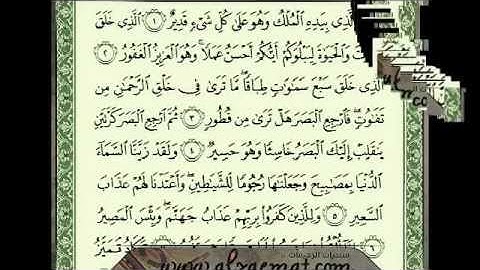 ـذِي بِيَدِهِ ٱلْمُلْكُ وَهُوَ عَلَىٰ كُلِّ شَىْءٍ قَدِيرٌ ۝١ ٱلَّذِى خَلَقَ
ـتَ وَٱلْحَيَوٰةَ لِيَبْلُوَكُمْ أَيُّكُمْ أَحْسَنُ عَمَلًا ۚ وَهُوَ ٱلْعَزِيزُ ٱلْغَفُورُ ۝٢
ٱلَّذِى خَلَقَ سَبْعَ سَمَٰوَٰتٍ طِبَاقًا ۖ مَّا تَرَىٰ فِى خَلْقِ ٱلرَّحْمَٰنِ مِن
تَفَٰوُتٍ ۖ فَٱرْجِعِ ٱلْبَصَرَ هَلْ تَرَىٰ مِن فُطُورٍ ۝٣ ثُمَّ ٱرْجِعِ ٱلْبَصَرَ كَرَّتَيْنِ
يَنقَلِبْ إِلَيْكَ ٱلْبَصَرُ خَاسِئًا وَهُوَ حَسِيرٌ ۝٤ وَلَقَدْ زَيَّنَّا ٱلسَّمَآءَ
ٱلدُّنْيَا بِمَصَٰبِيحَ وَجَعَلْنَٰهَا رُجُومًا لِّلشَّيَٰطِينِ ۖ وَأَعْتَدْنَا لَهُمْ عَذَابَ
ٱلسَّعِيرِ ۝٥ وَلِلَّذِينَ كَفَرُوا۟ بِرَبِّهِمْ عَذَابُ جَهَنَّمَ ۖ وَبِئْسَ ٱلْمَصِيرُ
۝٦
www.alzaemat.com